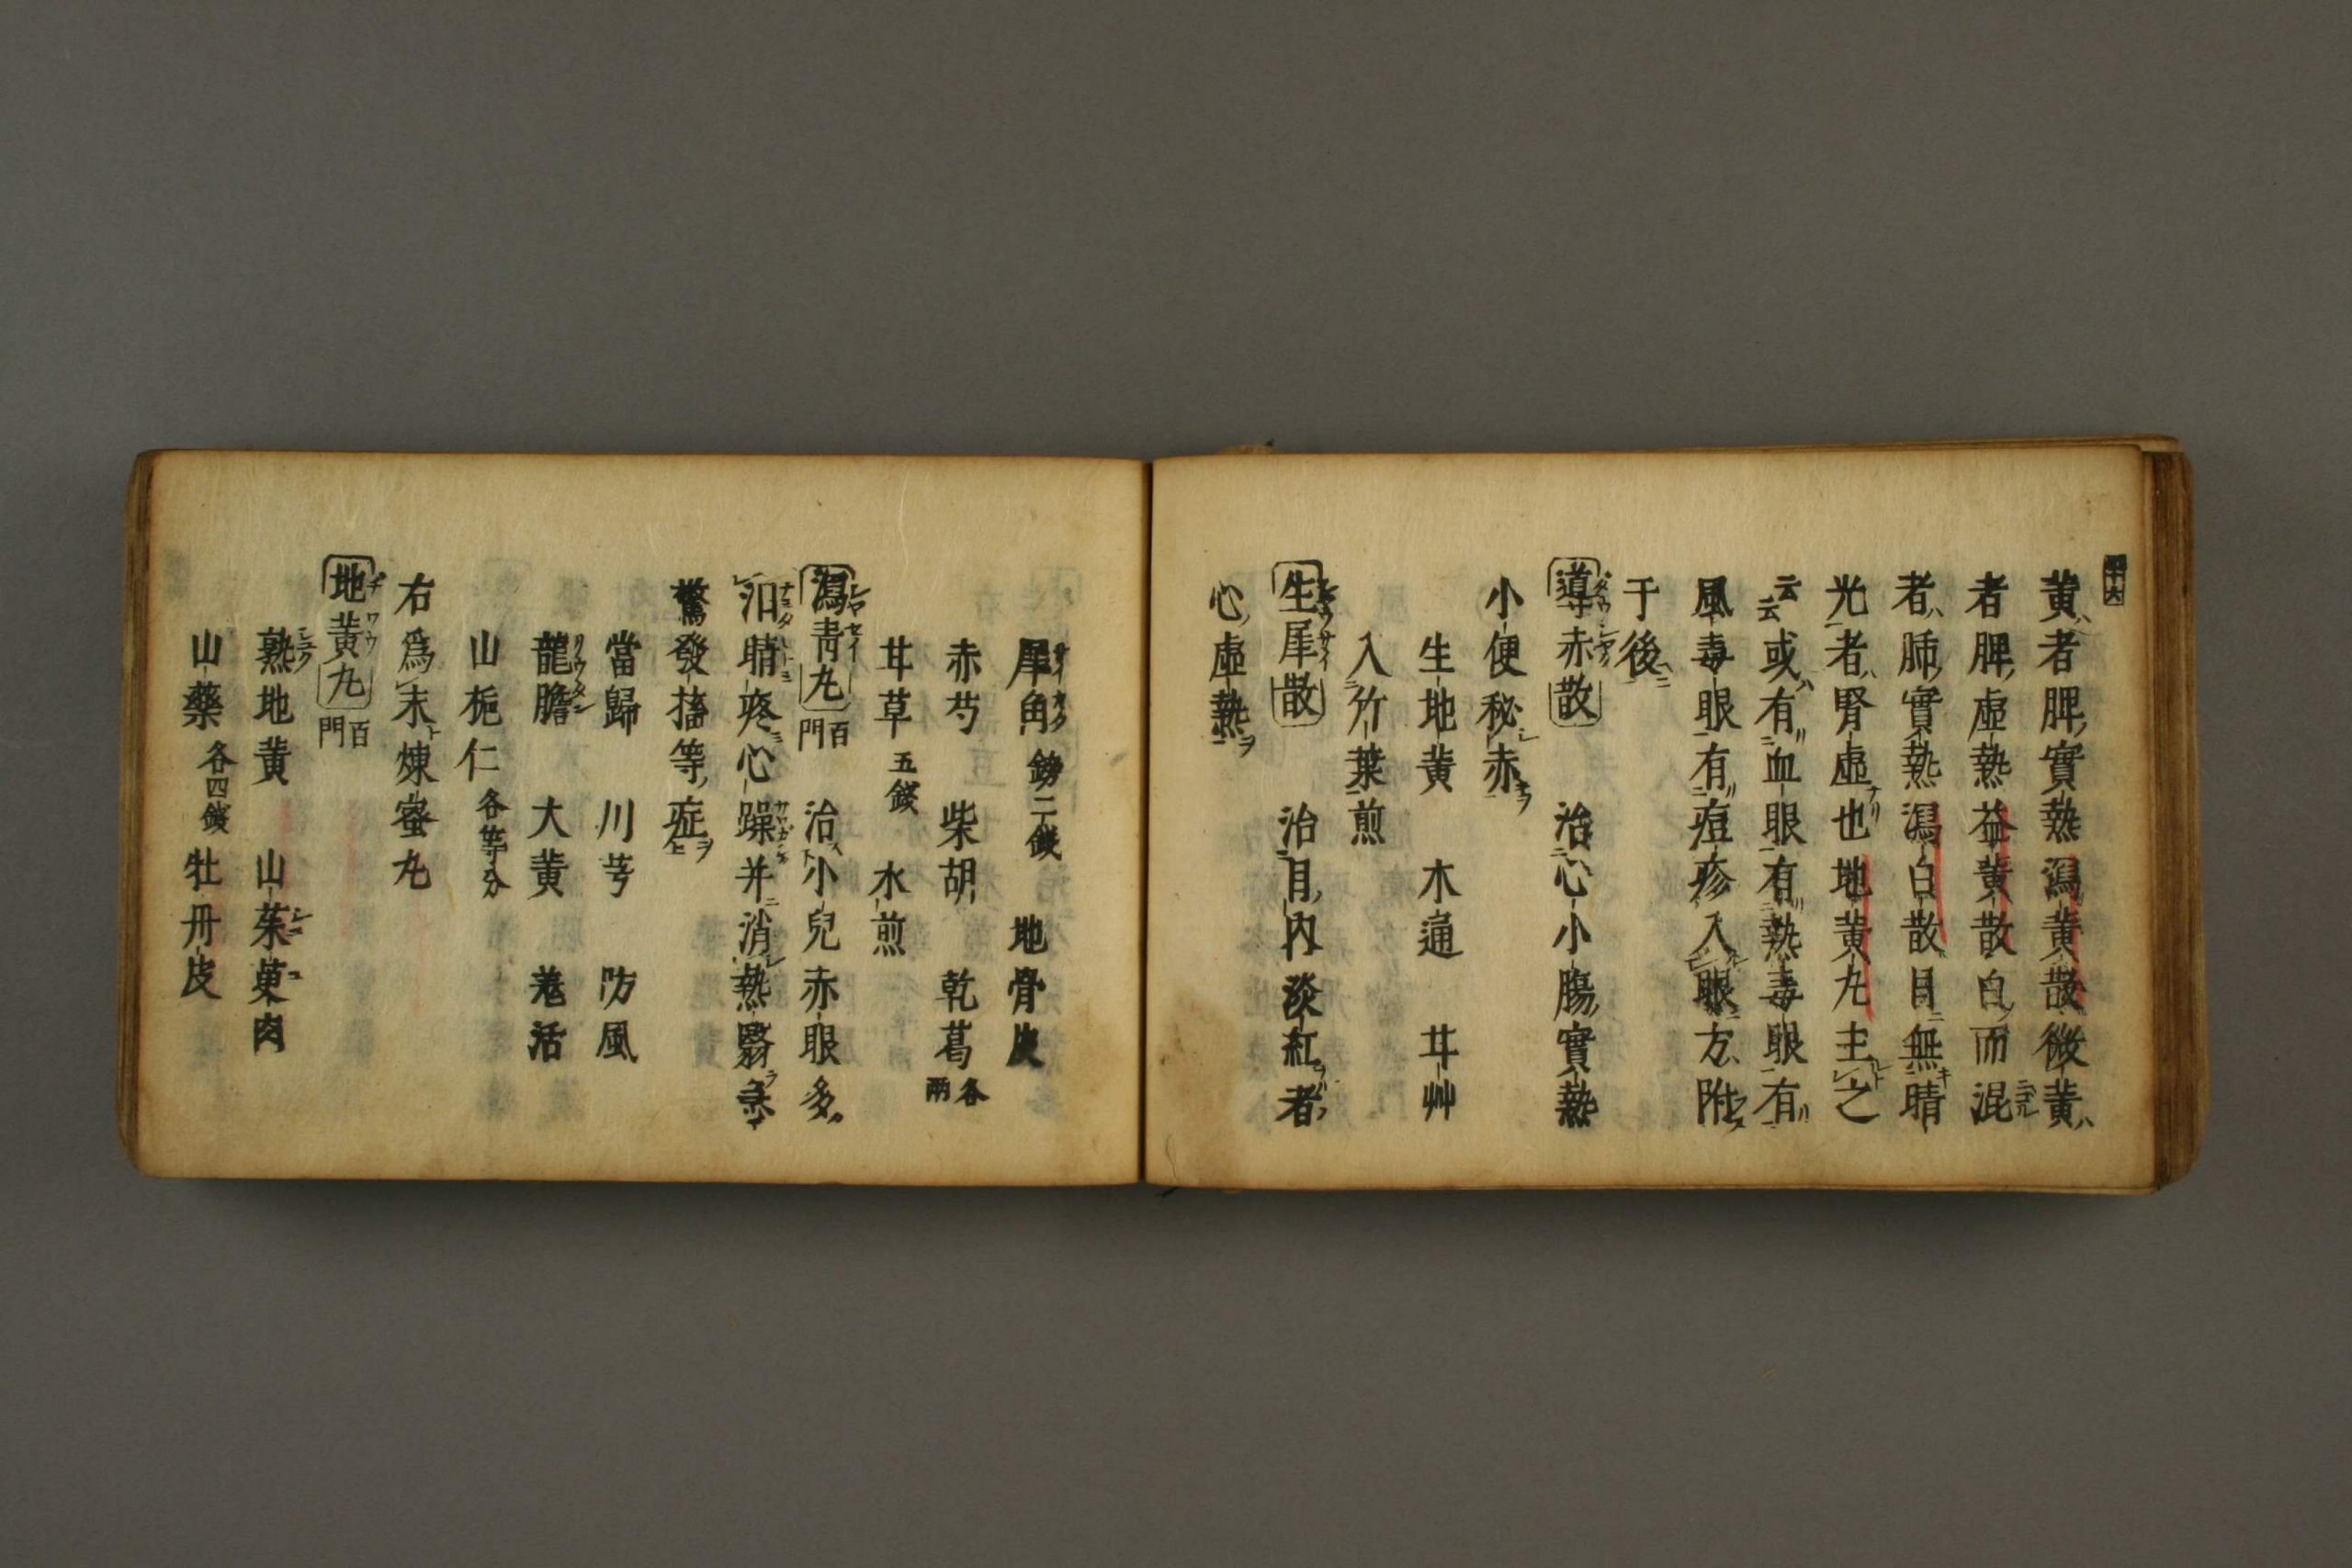 十六
黄者脾實熱瀉黄散微黄
者脾虚熱益黄散白而混
者肺實熱瀉白散目無睛
光者腎虚也地黄九主之
云云或有血眼有熱毒眼有
風毒眼有痘疹入眼方附
于後
導赤散 治心小腸實熱
小便秘赤
生地黄 木通 甘艸
入竹葉煎
生犀散 治目内淡紅者
心虚熱
犀角 鎊二錢 地骨皮
赤芍 柴胡 乾葛 各一兩
甘草 五錢 水煎
瀉青丸 百門 治小兒赤眼多
泪睛疼心躁并消熱翳
驚發搐等症
當歸 川芎 防風
龍膽 大黄 羗活
山梔仁 各等分
右爲末煉蜜丸
地黄丸 百門
熟地黄 山茱萸肉
山藥 各四錢 牡丹皮